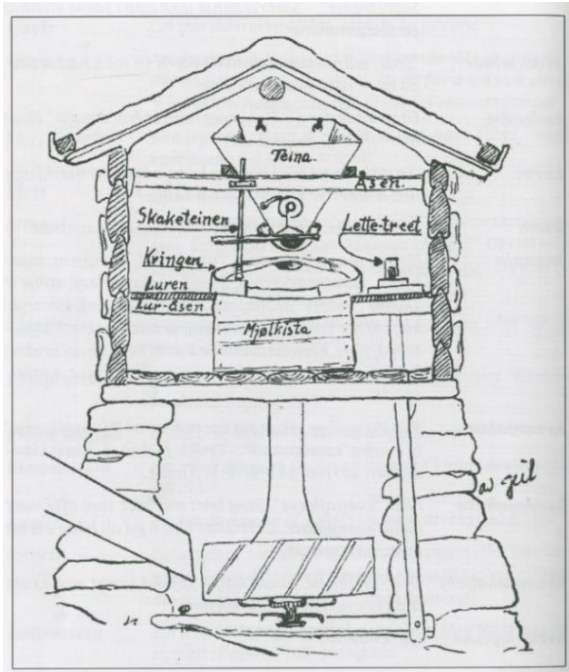 Teina.
Åsen.
Skaketeinen
Lette-treet
Kringen
Luren
Lur-åsen
Mjølkista